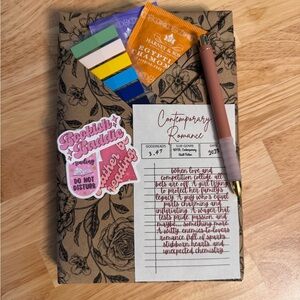 HARNEY & SONS
EGYPTIAN
CHAMOMILE
Bookish
Baddie
Reading
DO NOT
DISTURB
rather be
reading
Contemporary
Romance
GOODREADS
SUB GENRE
3.47
When love and
competition collide, all
bets are off. A girl trying
to protect her family's
legacy. A guy who's equal
parts charming and
infuriating. A wager that
tests pride, passion, and
maybe... something more.
A witty enemies-to-lovers
romance full of sparks,
stubborn hearts, and
unexpected chemistry.